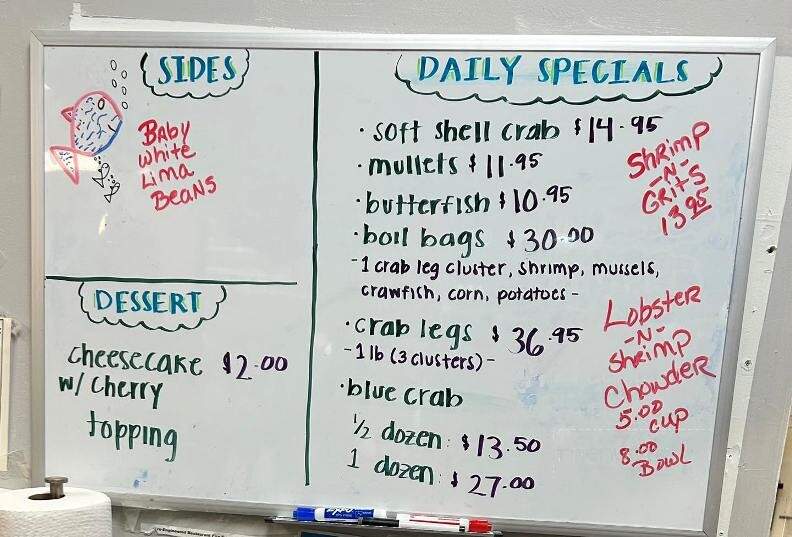 SIDES
BABY
WHITE
LIMA
BEANS
DESSERT
cheesecake $2.00
w/ cherry
topping
DAILY SPECIALS
· soft shell crab $14.95
· mullets $11.95
· butterfish $10.95
· boil bags $30.00
- 1 crab leg cluster, shrimp, mussels,
crawfish, corn, potatoes -
· crab legs $36.95
- 1 lb (3 clusters) -
· blue crab
1/2 dozen: $13.50
1 dozen: $27.00
SHRIMP
-N-
GRITS
13.95
Lobster
-N-
Shrimp
Chowder
5.00
cup
8.00
Bowl
EXPO